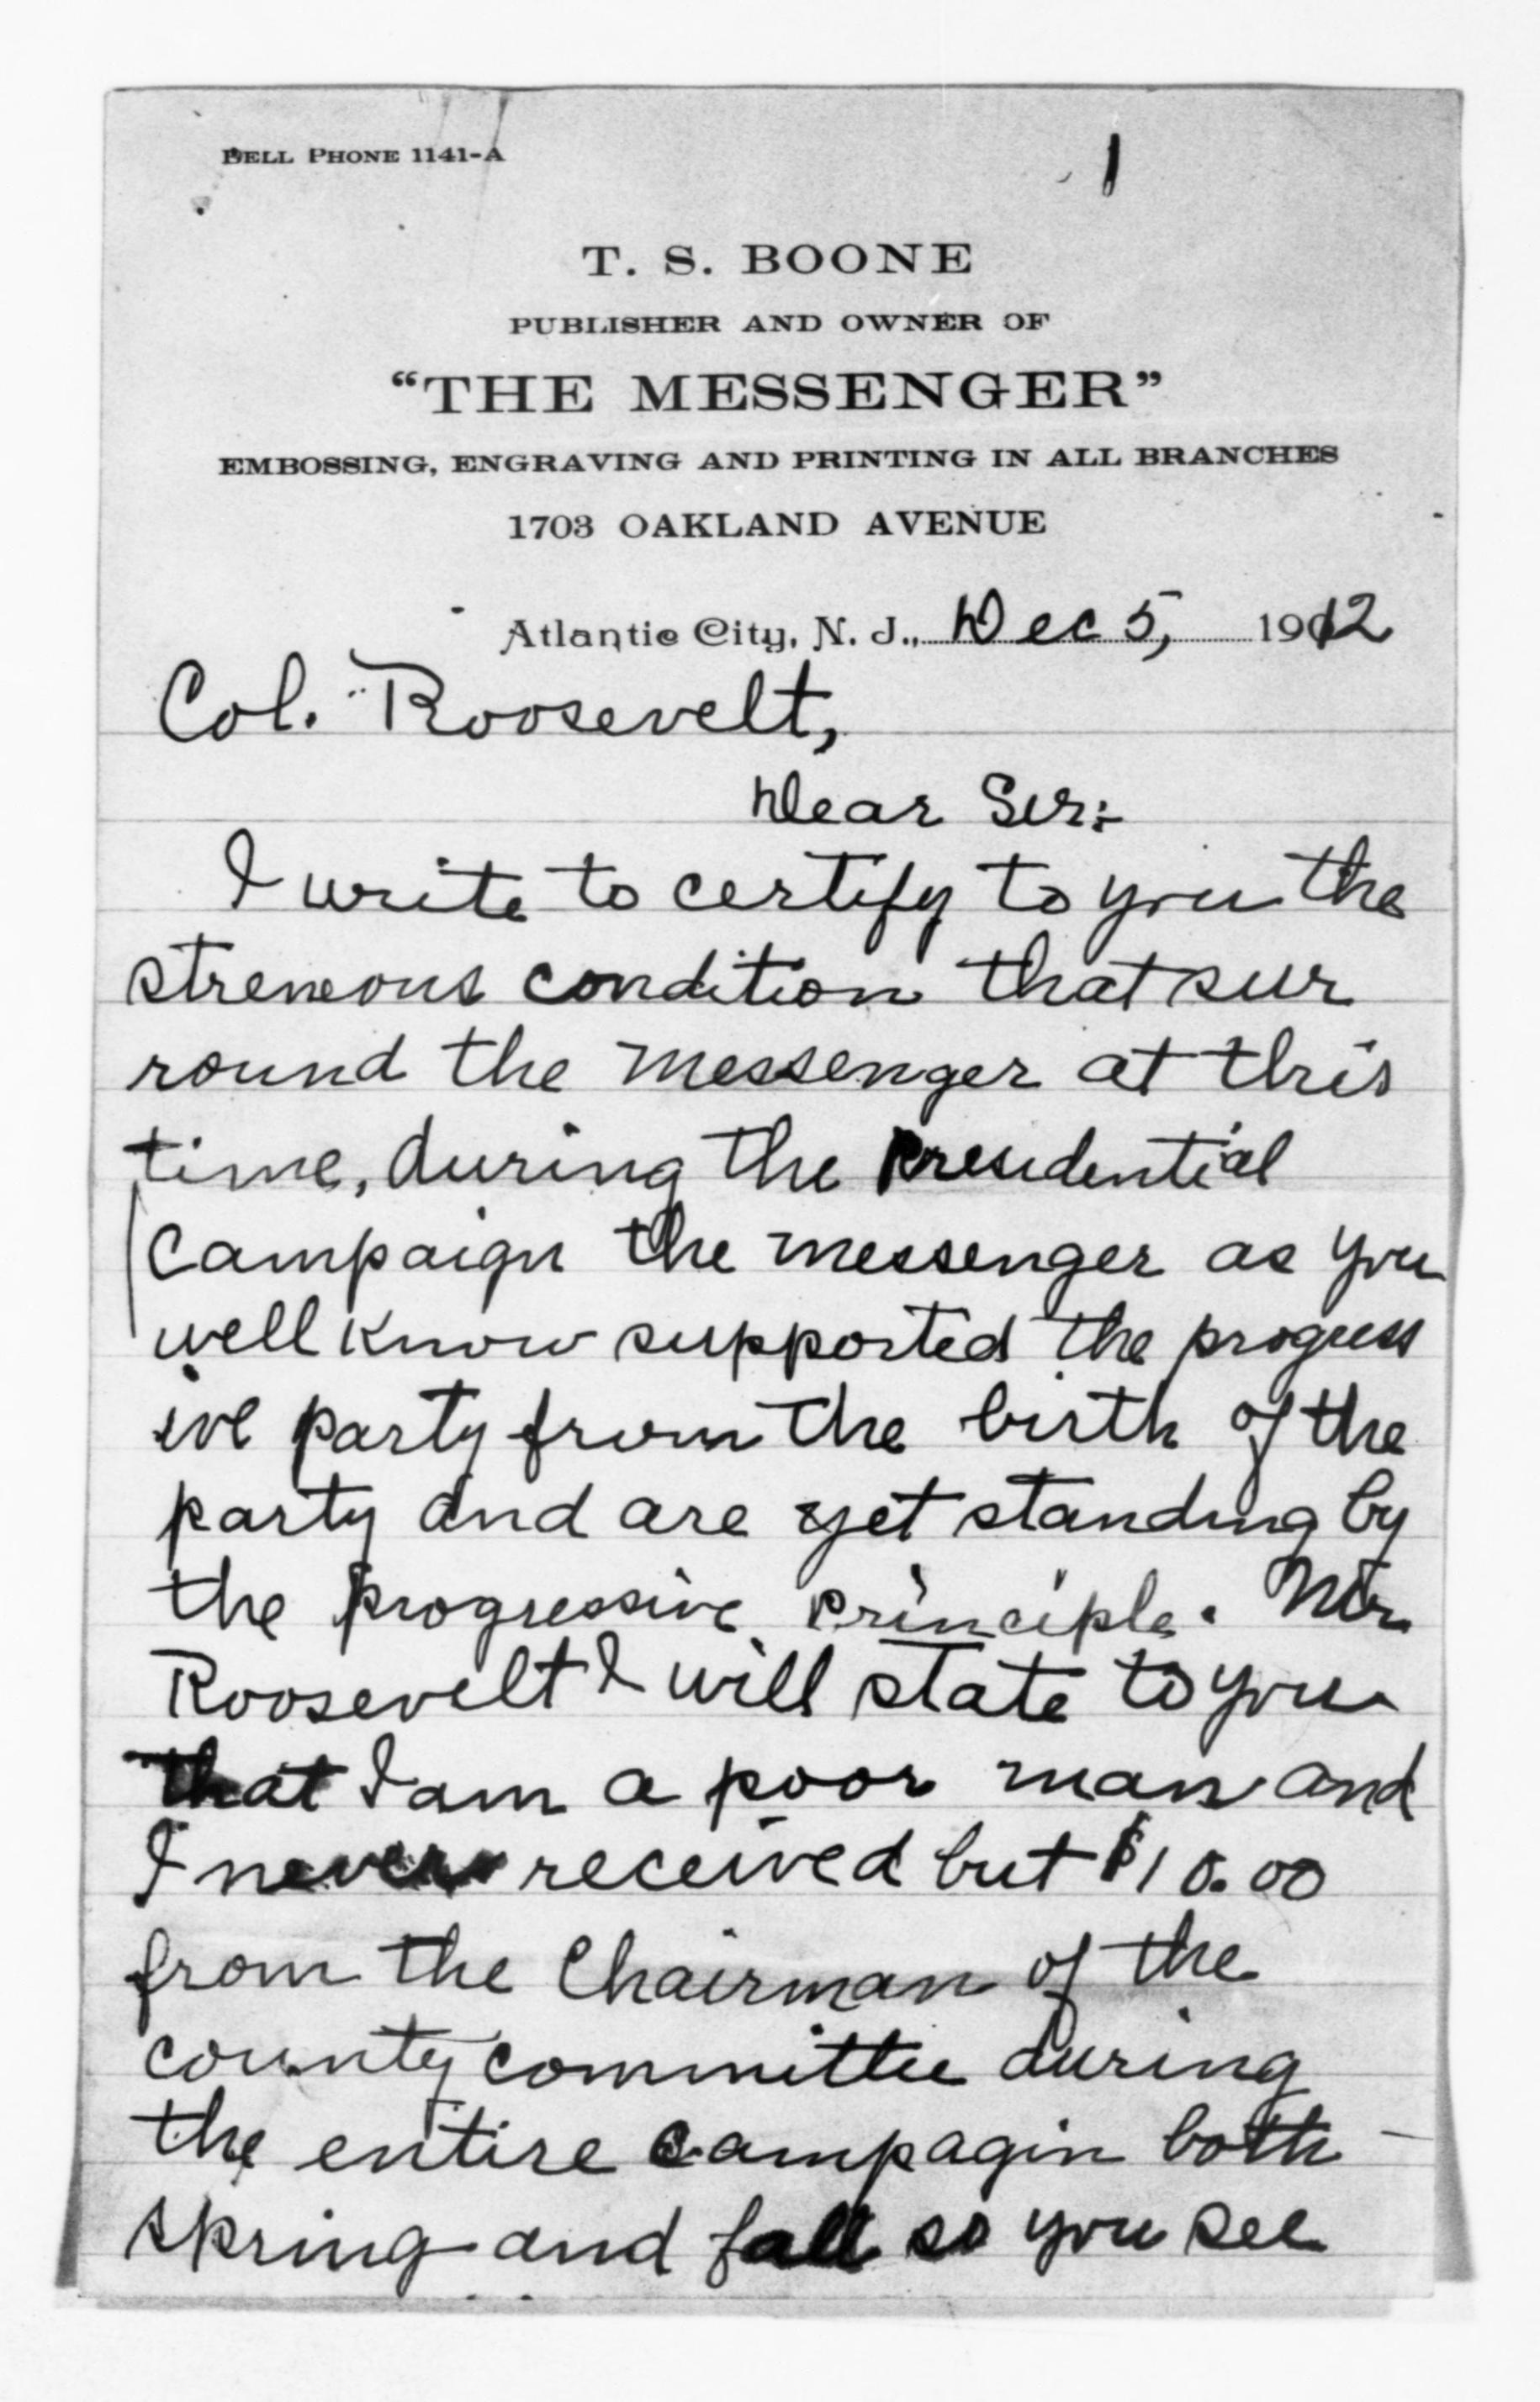 BELL PHONE 1141-A
1
T. S. BOONE
PUBLISHER AND OWNER OF
"THE MESSENGER"
EMBOSSING, ENGRAVING AND PRINTING IN ALL BRANCHES
1703 OAKLAND AVENUE
Atlantic City, N. J., Dec 5, 1912
Col. Roosevelt,
Dear Sir:-
I write to certify to you the
streneous condition that sur
round the Messenger at this
time, during the Presidential
Campaign the messenger as you
well know supported the progress
ive party from the birth of the
party and are yet standing by
the progressive principle. Mr.
Roosevelt I will state to you
that I am a poor man and
I never received but $10.00
from the Chairman of the
county committee during
the entire campagin both
spring and fall so you see